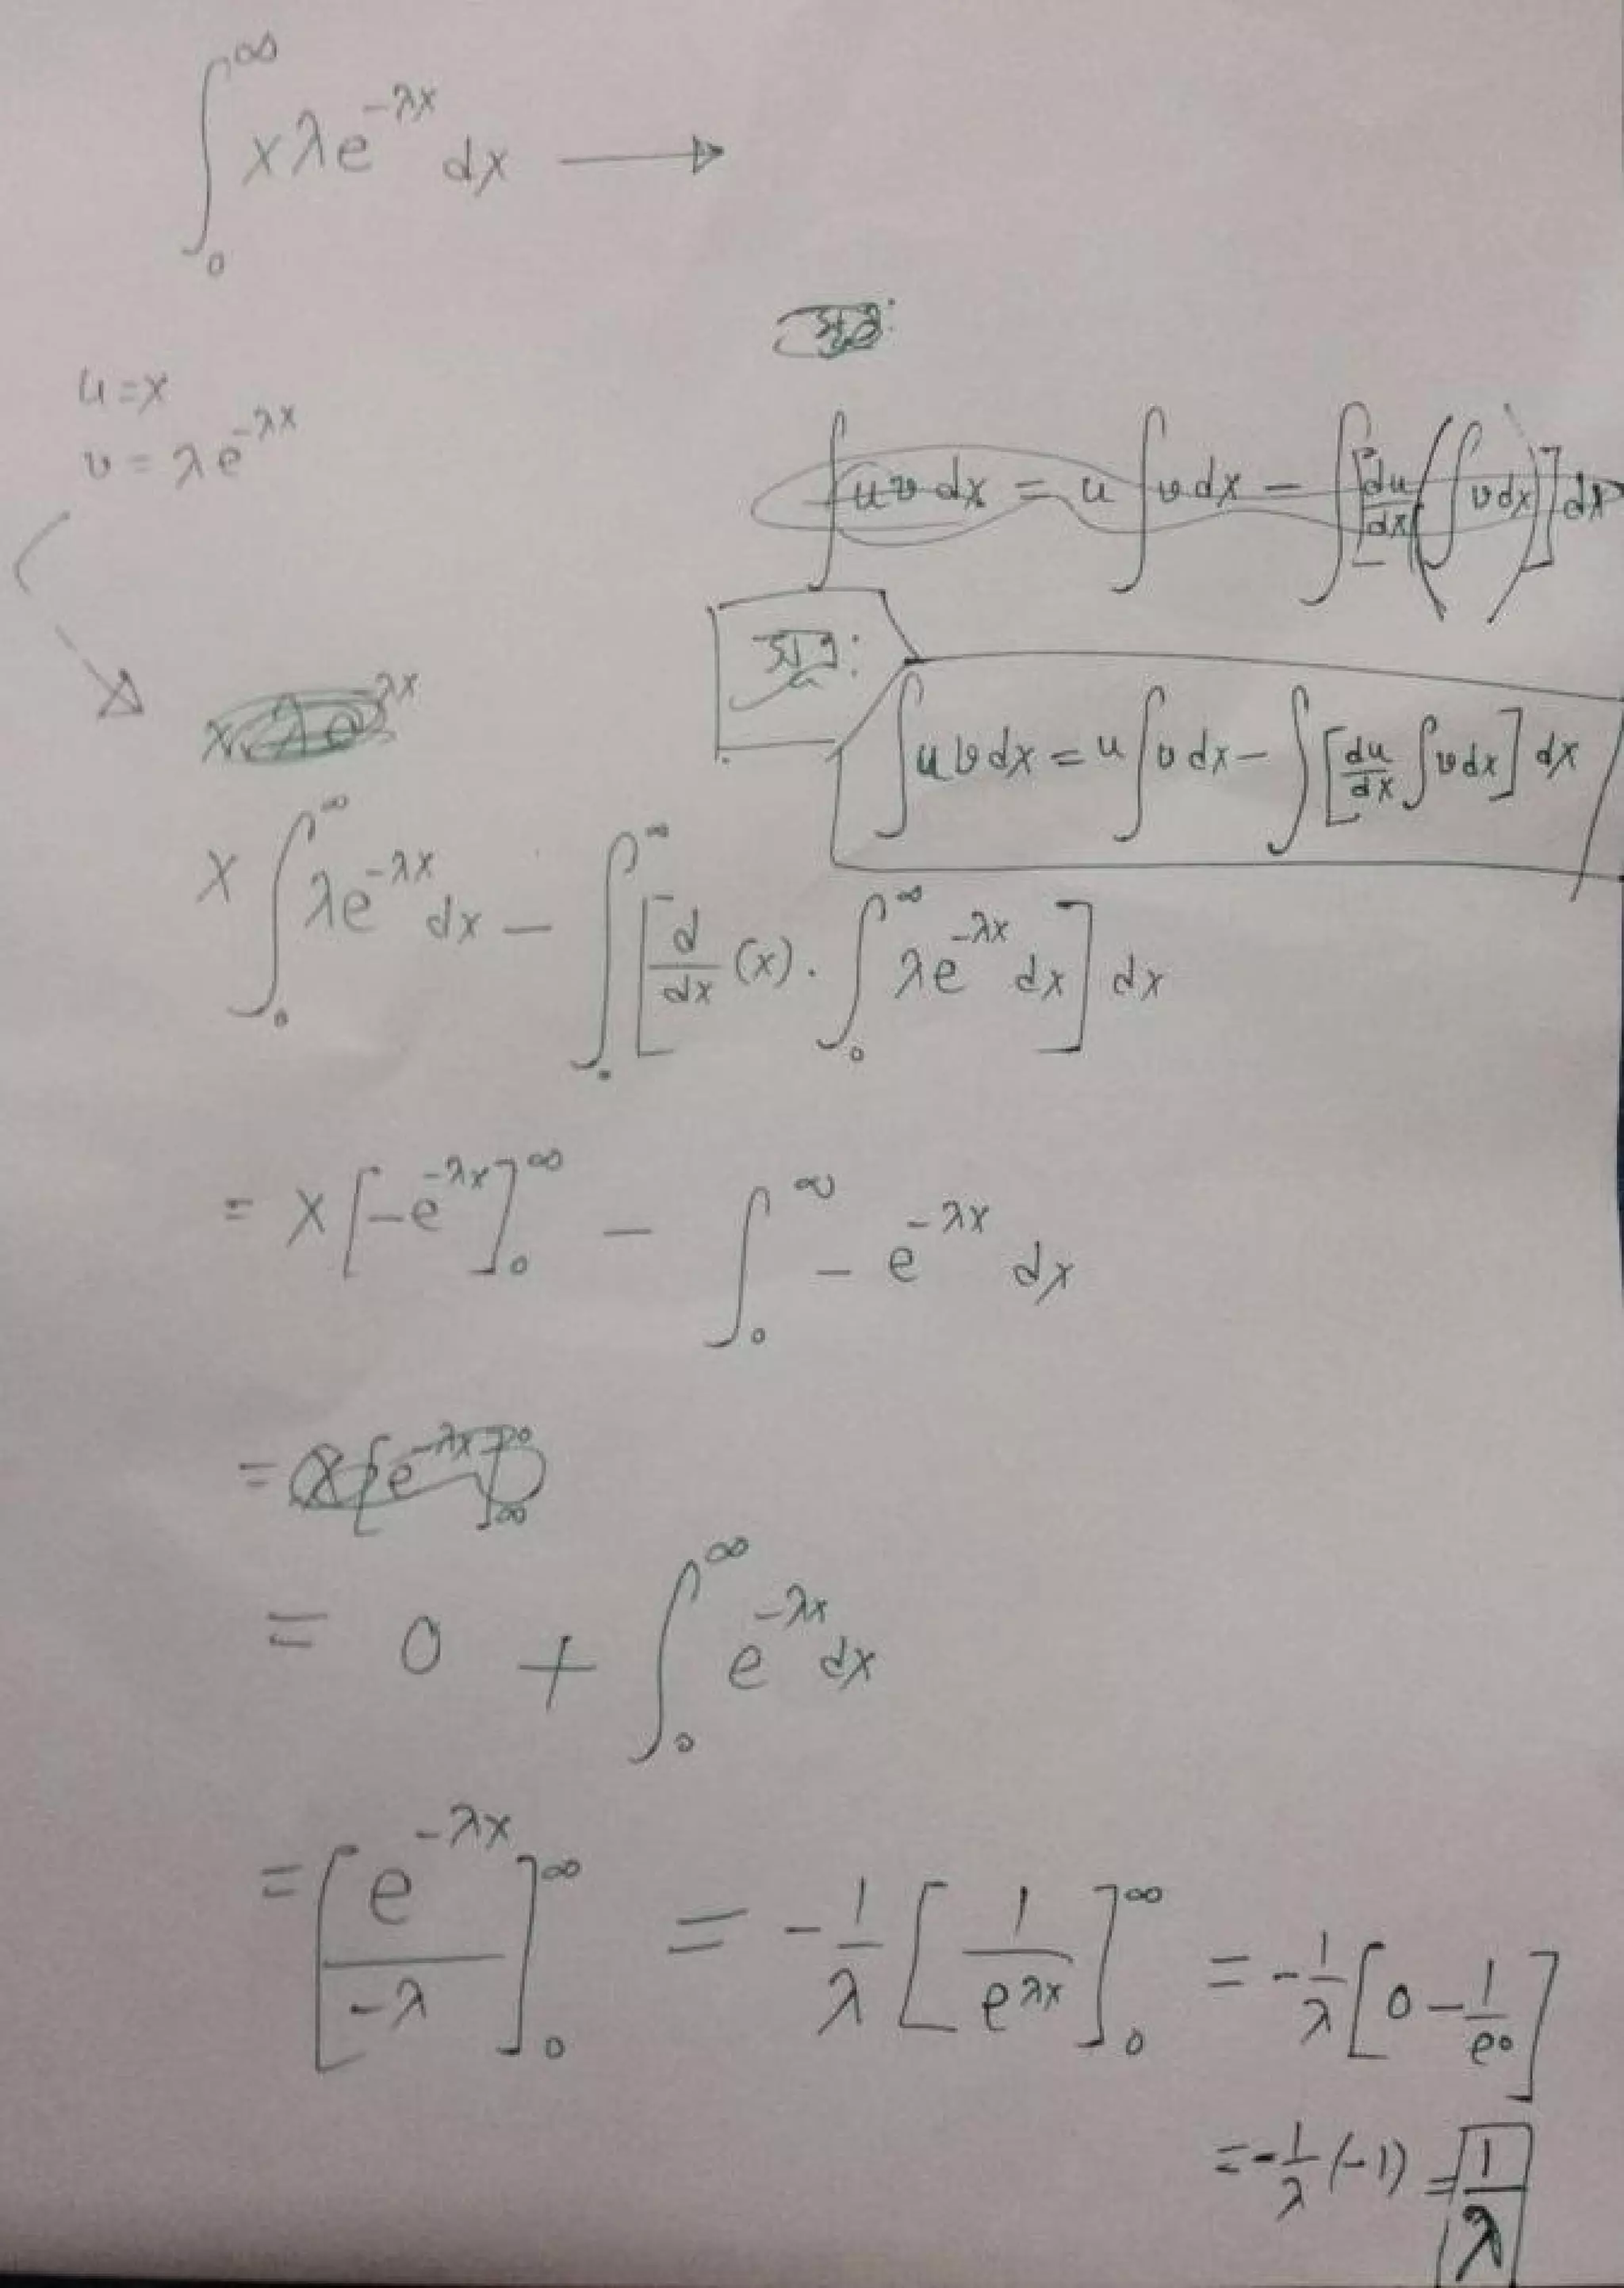 ∫₀^∞ xλe^{-λx} dx ⟶
u = x
v = λe^{-λx}
∫uv dx = u∫v dx − ∫[du/dx(∫v dx)] dx
∫uv dx = u∫v dx − ∫[du/dx ∫v dx] dx
x.λe^{-λx}
x∫₀^∞ λe^{-λx} dx − ∫₀^∞ [d/dx (x) · ∫₀^∞ λe^{-λx} dx] dx
= x[−e^{-λx}]₀^∞ − ∫₀^∞ − e^{-λx} dx
= x[e^{-λx}]_∞^0
= 0 + ∫₀^∞ e^{-λx} dx
= [e^{-λx}/−λ]₀^∞ = −1/λ [1/e^{λx}]₀^∞ = −1/λ [0 − 1/e⁰]
= −1/λ (−1) = 1/λ